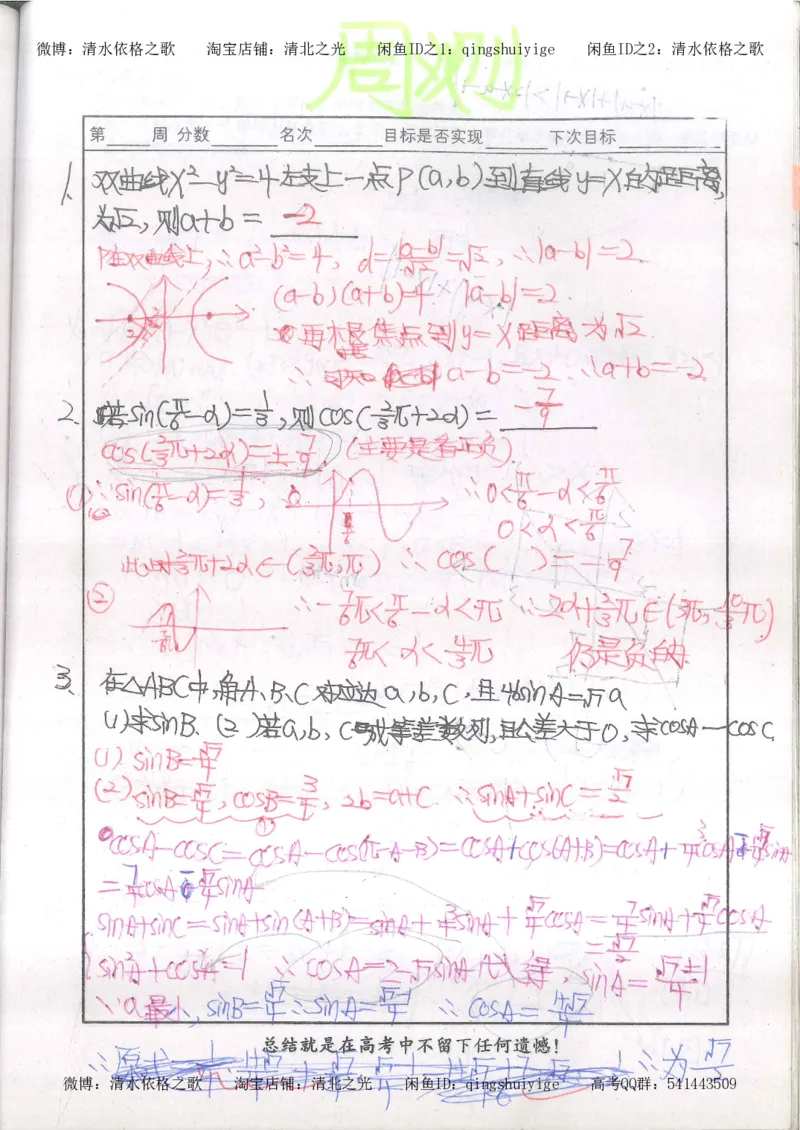 微博：清水依格之歌 淘宝店铺：清北之光 闲鱼ID之1：qingshuiyige 闲鱼ID之2：清水依格之歌
周测
第____周 分数______ 名次______ 目标是否实现______ 下次目标______
1、双曲线x²-y²=4左支上一点P(a,b)到直线y=x的距离
为√2，则a+b= -2
P在双曲线上，∴a²-b²=4，d=|a-b|/√2=√2，∴|a-b|=2.
(a-b)(a+b)=4 |a-b|=2
焦点到y=x距离为√2
∴ a-b=-2 ∴a+b=-2
2、若sin(π/6-α)=1/3，则cos(2/3π+2α)= -7/9
cos(2/3π+2α)=±7/9 (主要是看正负)
① ∵sin(π/6-α)=1/3， ∴0<π/6-α<π/6
0<α<π/6
此时2/3π+2α∈(2/3π,π) ∴cos( )=-7/9
② ∴-7/6π<π/6-α<-π ∴2α+2/3π∈(3π,10/3π)
7/6π<α<4/3π 仍是负的.
3、在△ABC中，角A、B、C对应边a,b,c，且4bsinA=√7a
(1)求sinB. (2)若a,b,c成等差数列，且公差大于0，求cosA-cosC.
(1) sinB=√7/4
(2) sinB=√7/4，cosB=3/4，2b=a+c ∴sinA+sinC=√7/2
①
cosA-cosC=cosA-cos(π-A-B)=cosA+cos(A+B)=cosA+3/4cosA-√7/4sinA
=7/4cosA-√7/4sinA
sinA+sinC=sinA+sin(A+B)=sinA+3/4sinA+√7/4cosA=7/4sinA+√7/4cosA
=√7/2
sin²A+cos²A=1 ∴cosA=2-√7sinA代入得，sinA=(√7±1)/4
∵a最小，sinB=√7/4 ∴sinA=(√7-1)/4 ∴cosA=(1+√7)/4
总结就是在高考中不留下任何遗憾！
∴原式= ∴为√7/2
微博：清水依格之歌 淘宝店铺：清北之光 闲鱼ID：qingshuiyige 高考QQ群：541443509